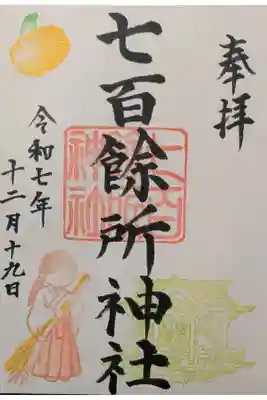 奉拝
七百餘所神社
令和七年
十二月十九日